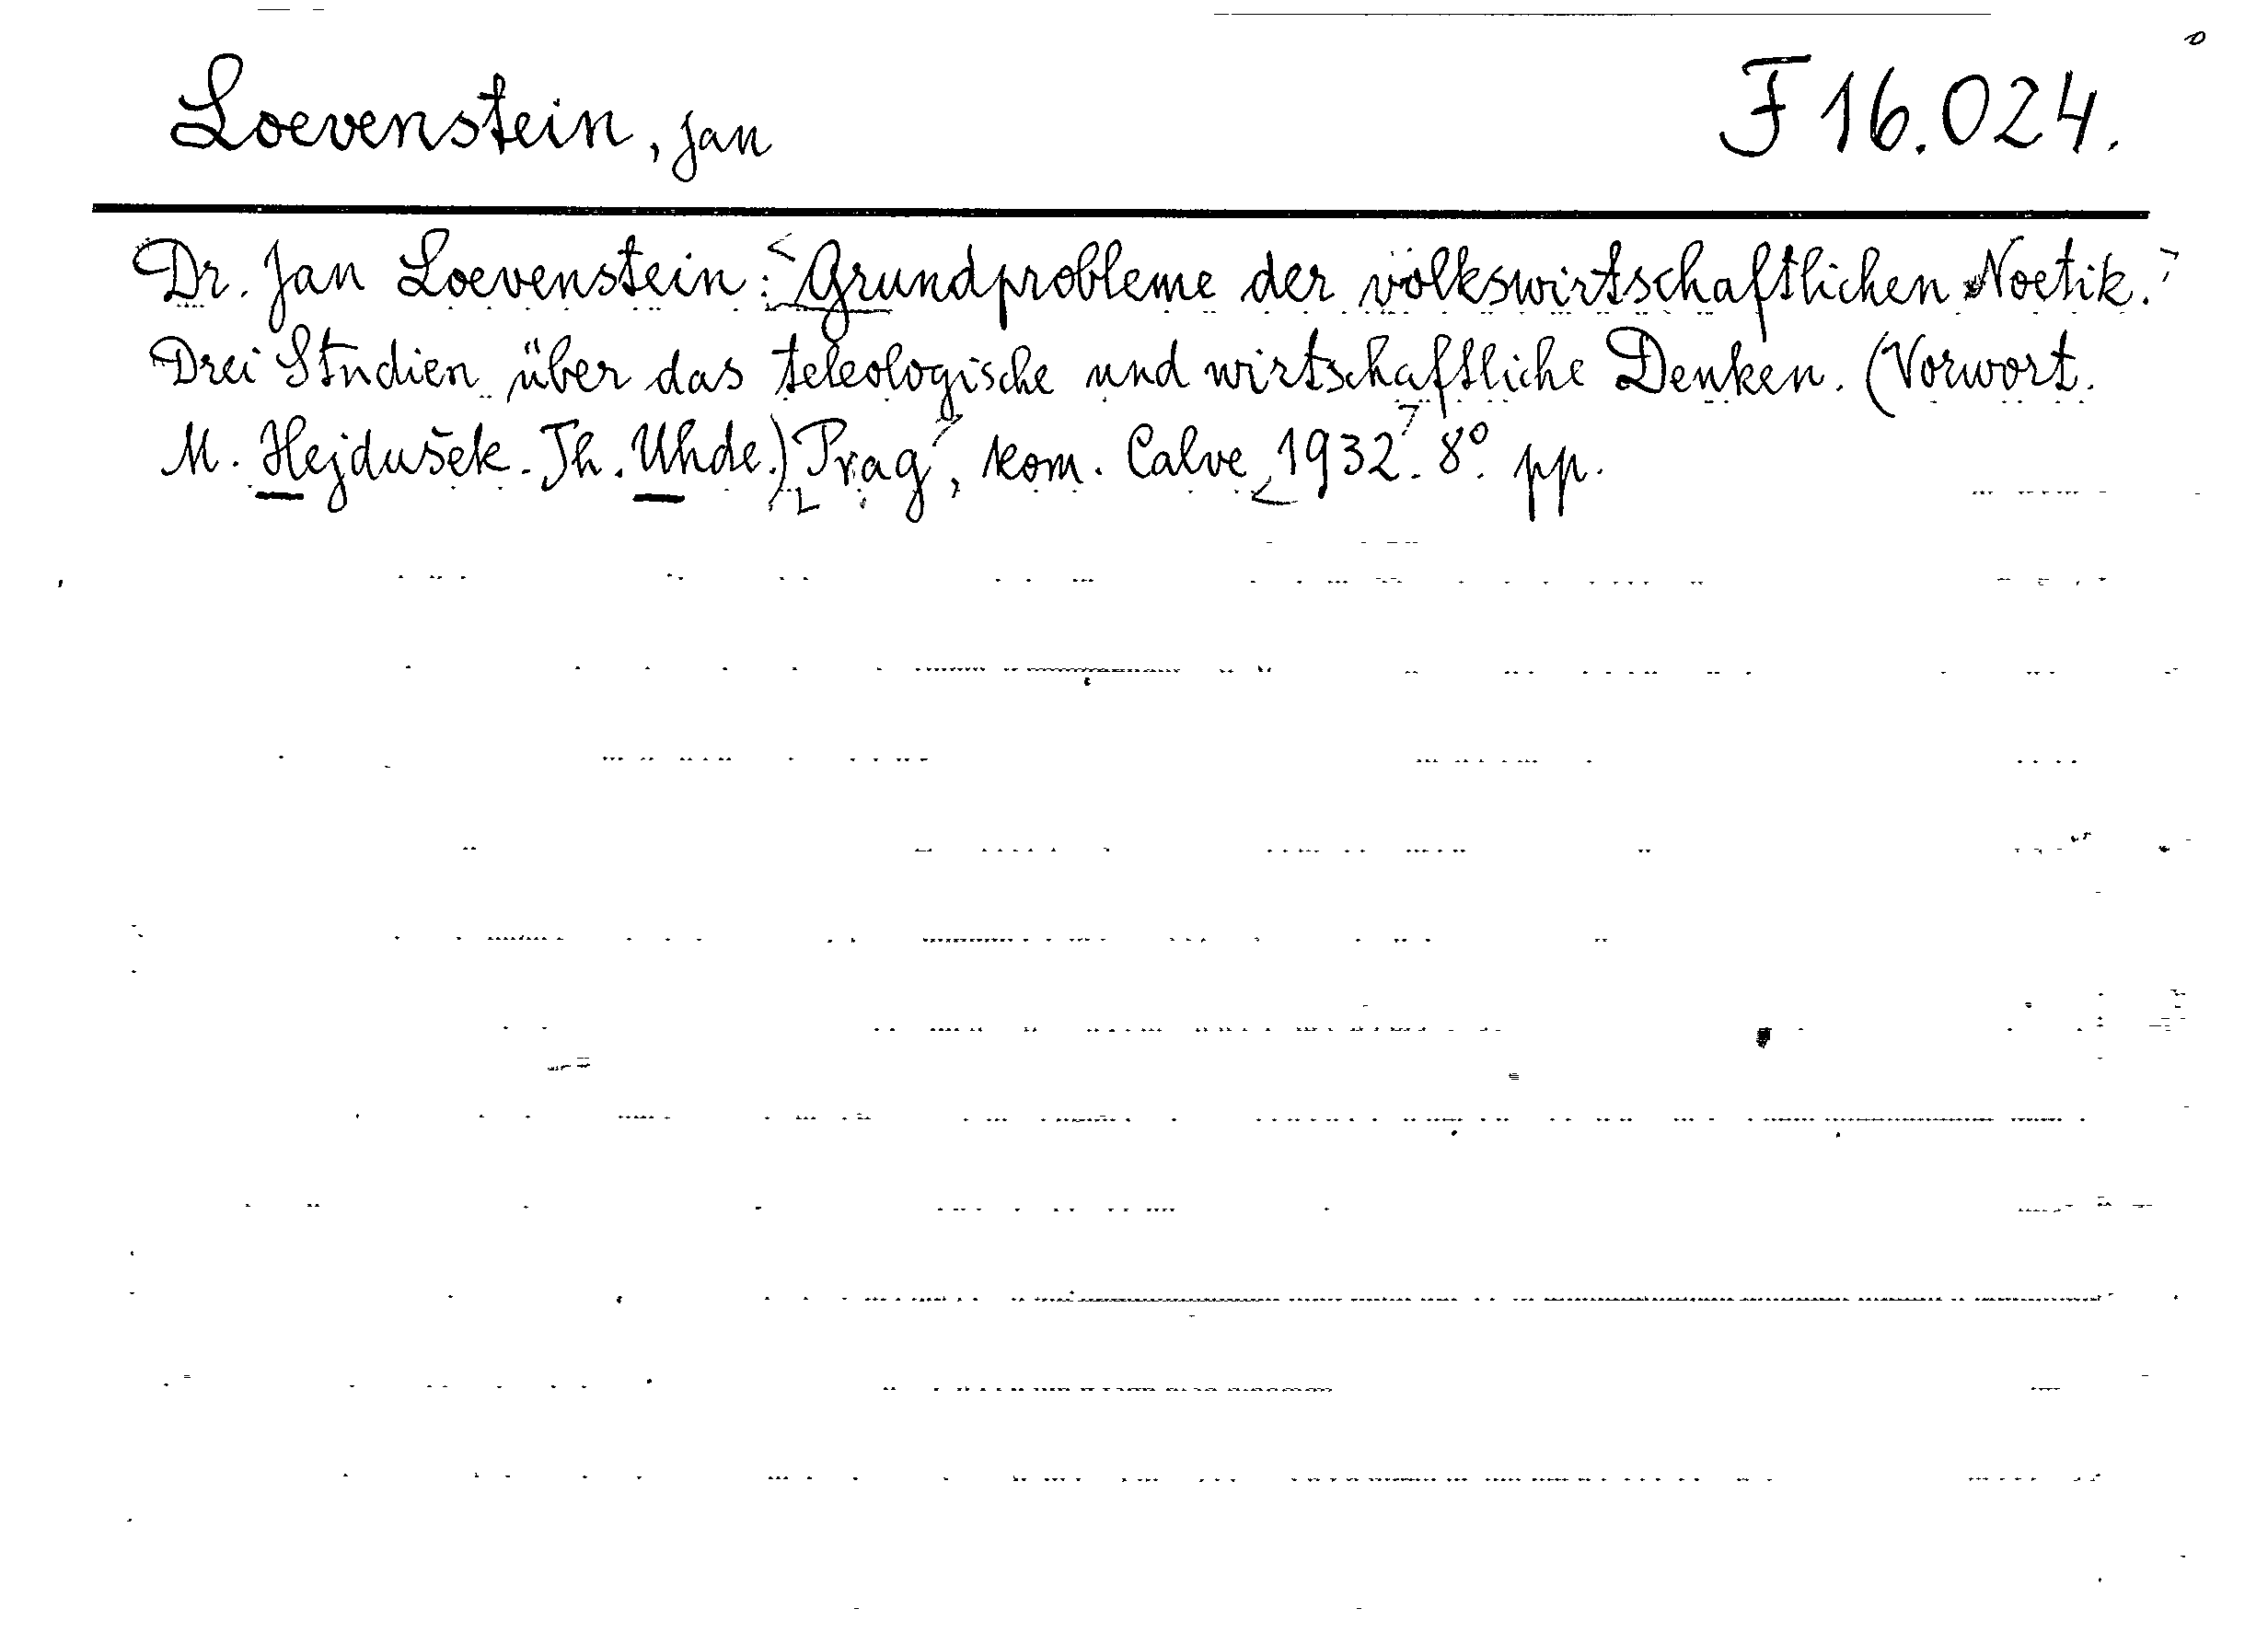 Loevenstein, Jan F 16.024.
Dr. Jan Loevenstein: <Grundprobleme der volkswirtschaftlichen Noetik.>
Drei Studien über das teleologische und wirtschaftliche Denken. (Vorwort.
M. Hejdušek. Th. Uhde.) Prag, kom. Calve, 1932. 8° pp.